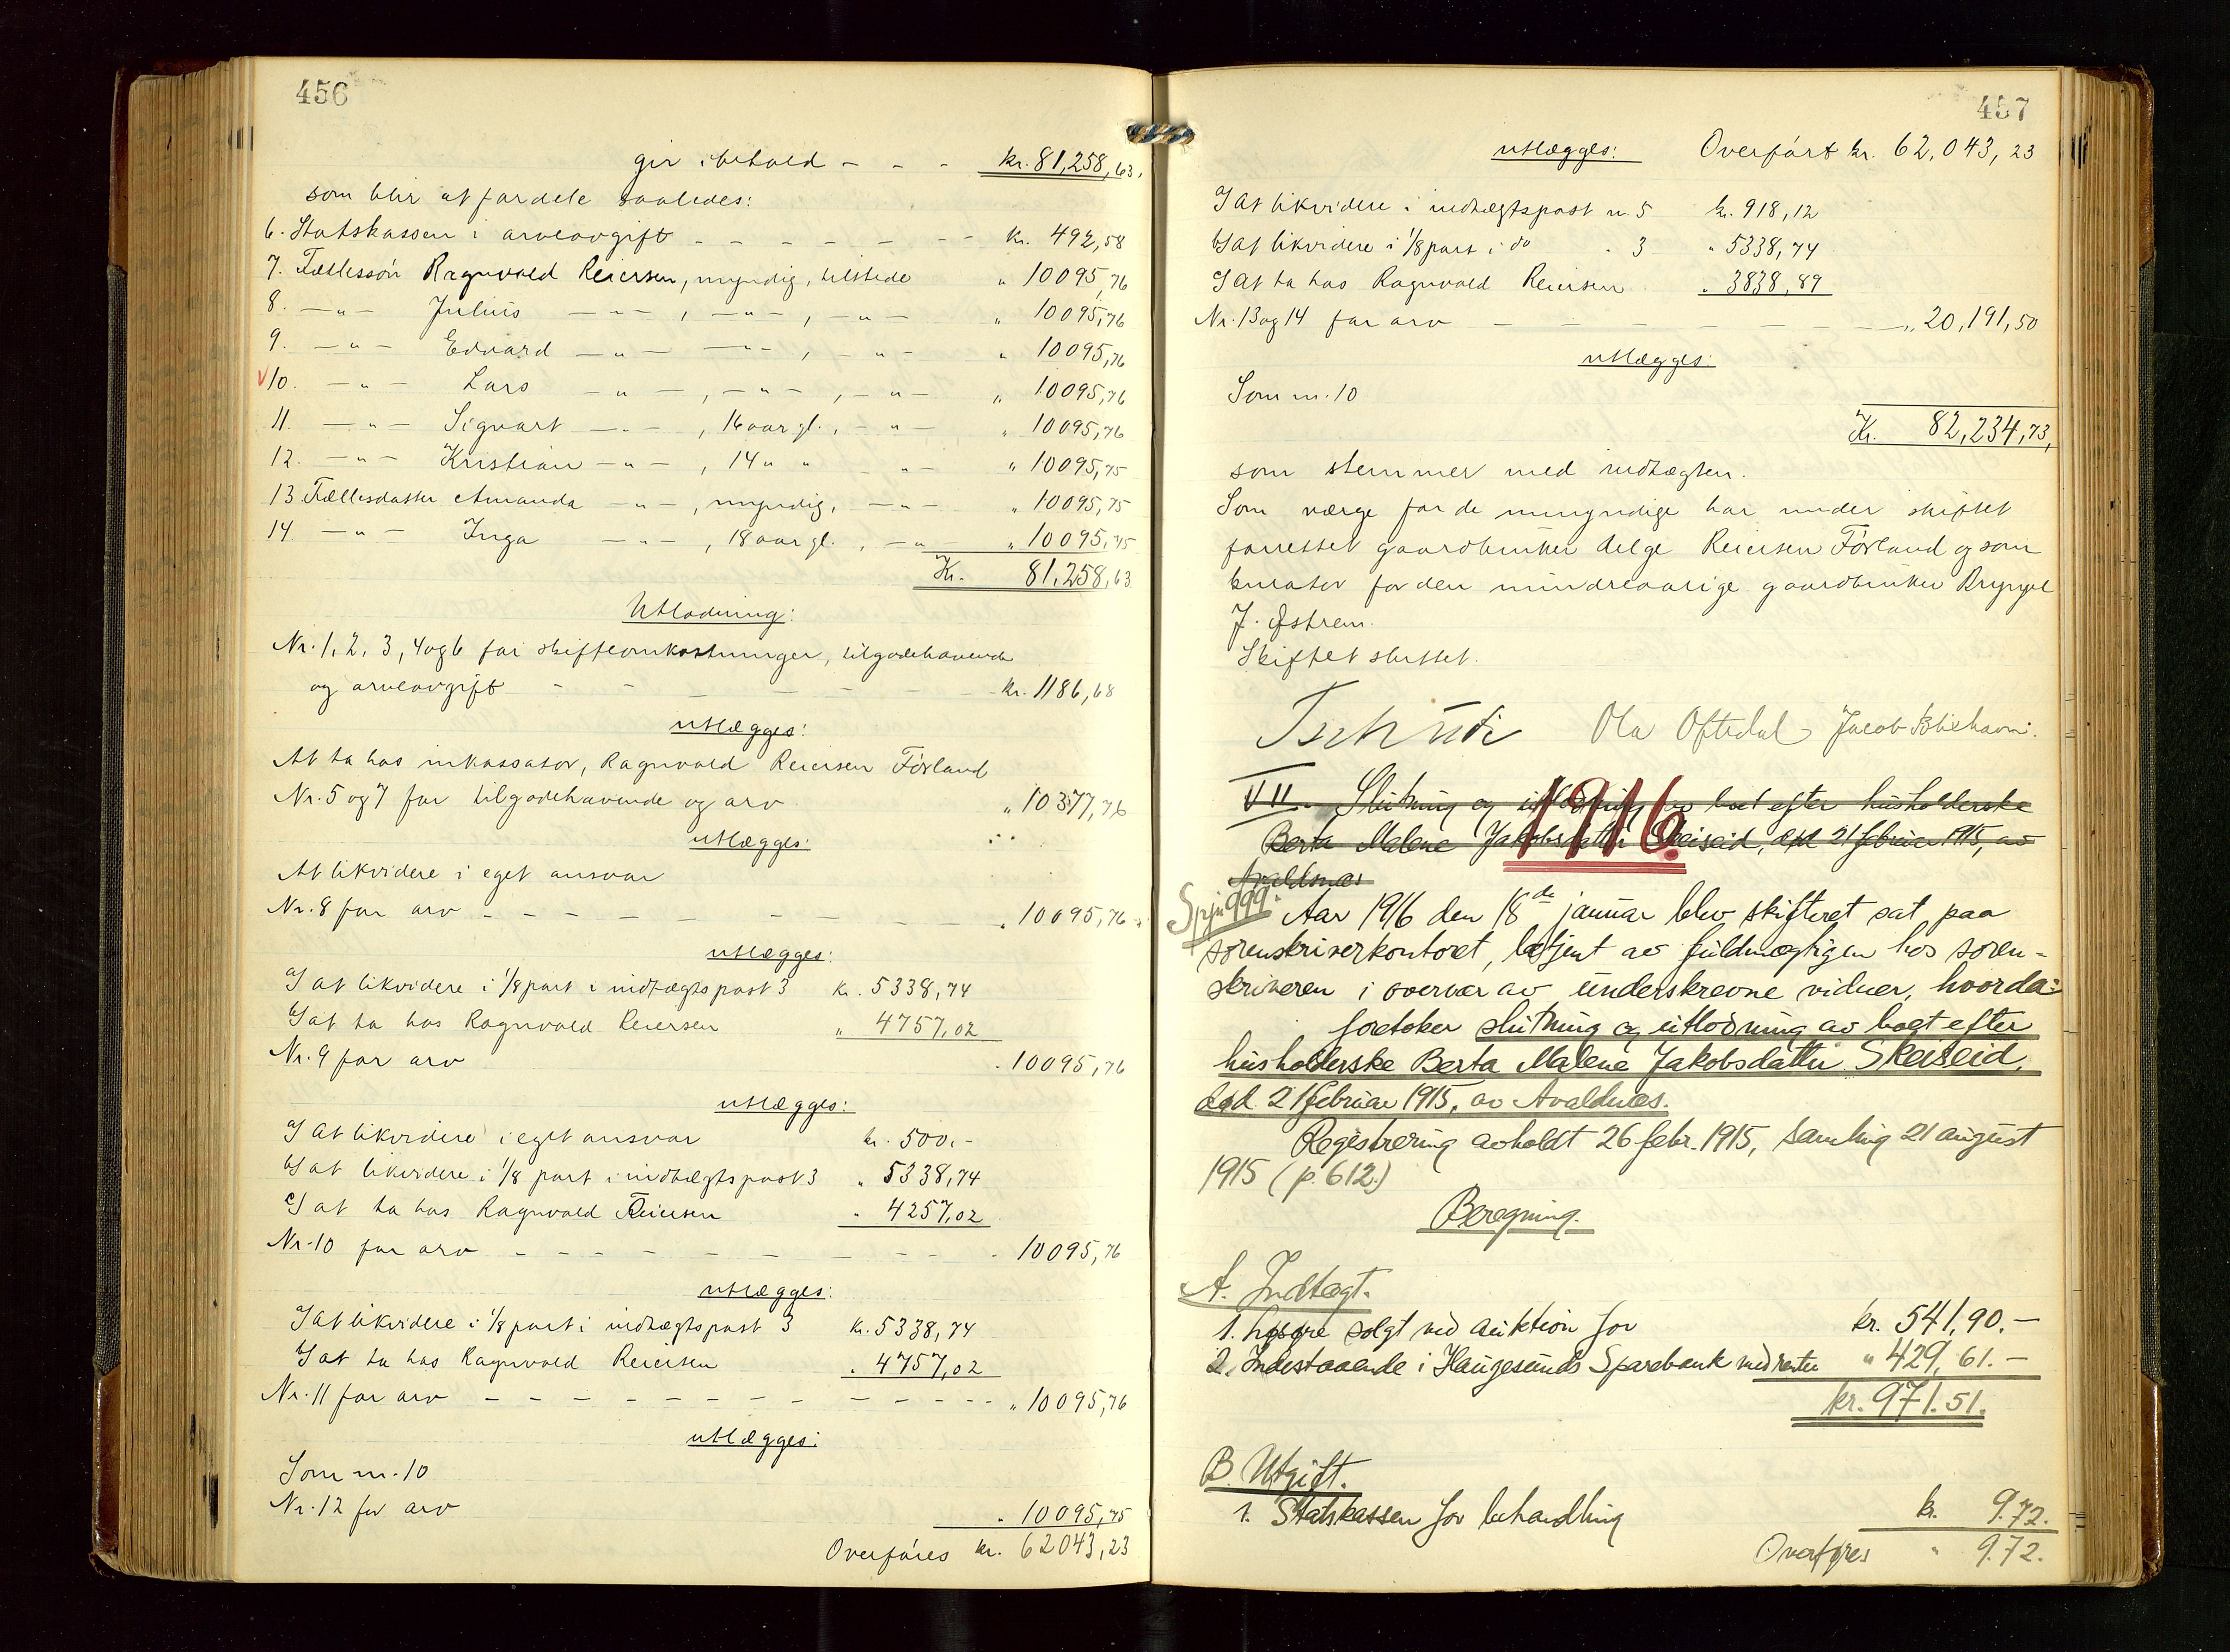 456
gir i behold - - - kr. 81,258,63.
som blir at fordele saaledes:
6. Statskassen i arveavgift - - - - - - - kr. 492,58
7. Fællessøn Ragnvald Reiersen, myndig, tilstede " 10095,76
8. -"- Julius -"- , -"- , -"- " 10095,76
9. -"- Edvard -"- -"- , -"- " 10095,76
V10. -"- Lars -"- , -"- , -"- " 10095,76
11. -"- Sigvart -"- , 16 aar gl., -"- " 10095,76
12. -"- Kristian -"- , 14 " " -"- " 10095,75
13. Fællesdatter Amanda -"- , myndig, -"- " 10095,75
14. -"- Inga -"- , 18 aar gl., -"- " 10095,75
Kr. 81,258,63
Utlodning:
Nr. 1, 2, 3, 4 og 6 for skifteomkostninger, tilgodehavende
og arveavgift - - - - - - kr. 1186,68
utlægges:
At ta hos inkassator, Ragnvald Reiersen Førland
Nr. 5 og 7 for tilgodehavende og arv " 10377,76
utlægges:
At likvidere i eget ansvar
Nr. 8 for arv - - - - - - - - " 10095,76
utlægges:
a) at likvidere i 1/8 part i indtægtspost 3 kr. 5338,74
b) at ta hos Ragnvald Reiersen " 4757,02
Nr. 9 for arv " 10095,76
utlægges:
a) At likvidere i eget ansvar kr. 500.-
b) at likvidere i 1/8 part i indtægtspost 3 " 5338,74
c) at ta hos Ragnvald Reiersen " 4257,02
Nr. 10 for arv - - - - - - - - " 10095,76
utlægges:
a) at likvidere i 1/8 part i indtægtspost 3 kr. 5338,74
b) at ta hos Ragnvald Reiersen " 4757,02
Nr. 11 for arv - - - - - - - - - - " 10095,76
utlægges:
Som nr. 10
Nr. 12 for arv " 10095,75
Overføres kr. 62043,23
457
utlægges: Overført kr. 62,043,23
a) At likvidere i indtægtspost nr. 5 kr. 918,12
b) at likvidere i 1/8 part i do " 3 " 5338,74
c) At ta hos Ragnvald Reiersen " 3838,89
Nr. 13 og 14 for arv - - - - - - - " 20,191,50
utlægges:
Som nr. 10
Kr. 82,234,73,
som stemmer med indtægten.
Som værge for de umyndige har under skiftet
forrettet gaardbruker Helge Reiersen Førland og som
kurator for den mindreaarige gaardbruker Brynjel
J. Østrem.
Skiftet sluttet.
Tschudi Ola Oftedal Jacob
VII. Slutning og utlodning av boet efter husholderske
Berta Malene Jakobsdatter Skeiseid, død 21 februar 1915, av
Avaldsnes
1916.
999. Aar 1916 den 18de januar blev skifteret sat paa
sorenskriverkontoret, betjent av fuldmægtigen hos soren-
skriveren i overvær av underskrevne vidner, hvorda:
foretokes slutning og utlodning av boet efter
husholderske Berta Malene Jakobsdatter Skeiseid,
død 21 februar 1915, av Avaldsnes.
Registrering avholdt 26 febr. 1915, samling 21 august
1915 (p. 612.)
Beregning.
A. Indtægt.
1. Løsøre solgt ved auktion for kr. 541,90.-
2. Indestaaende i Haugesunds Sparebank med renter " 429,61.-
kr. 971.51.
B. Utgift.
1. Statskassen for behandling kr. 9.72.
Overføres " 9.72.